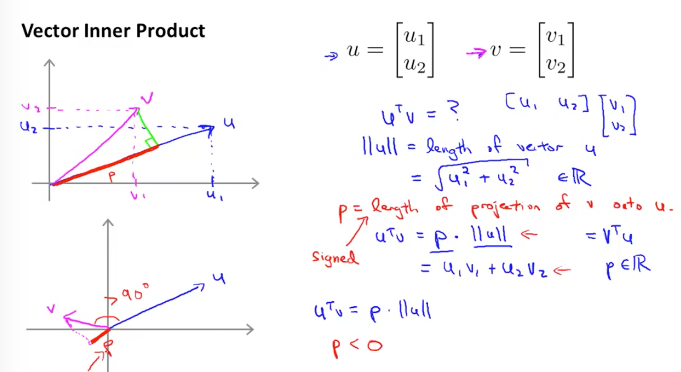 Vector Inner Product
⇒ u = [u1 u2]
→ v = [v1 v2]
v2
u2
v
u
p
v1
u1
uᵀv = ?
[u1 u2] [v1 v2]
||u|| = length of vector u
= √(u1² + u2²) ∈ ℝ
p = length of projection of v onto u.
signed
uᵀv = p · ||u|| ← = vᵀu
= u1v1 + u2v2 ← p ∈ ℝ
u
> 90°
v
p
uᵀv = p · ||u||
p < 0